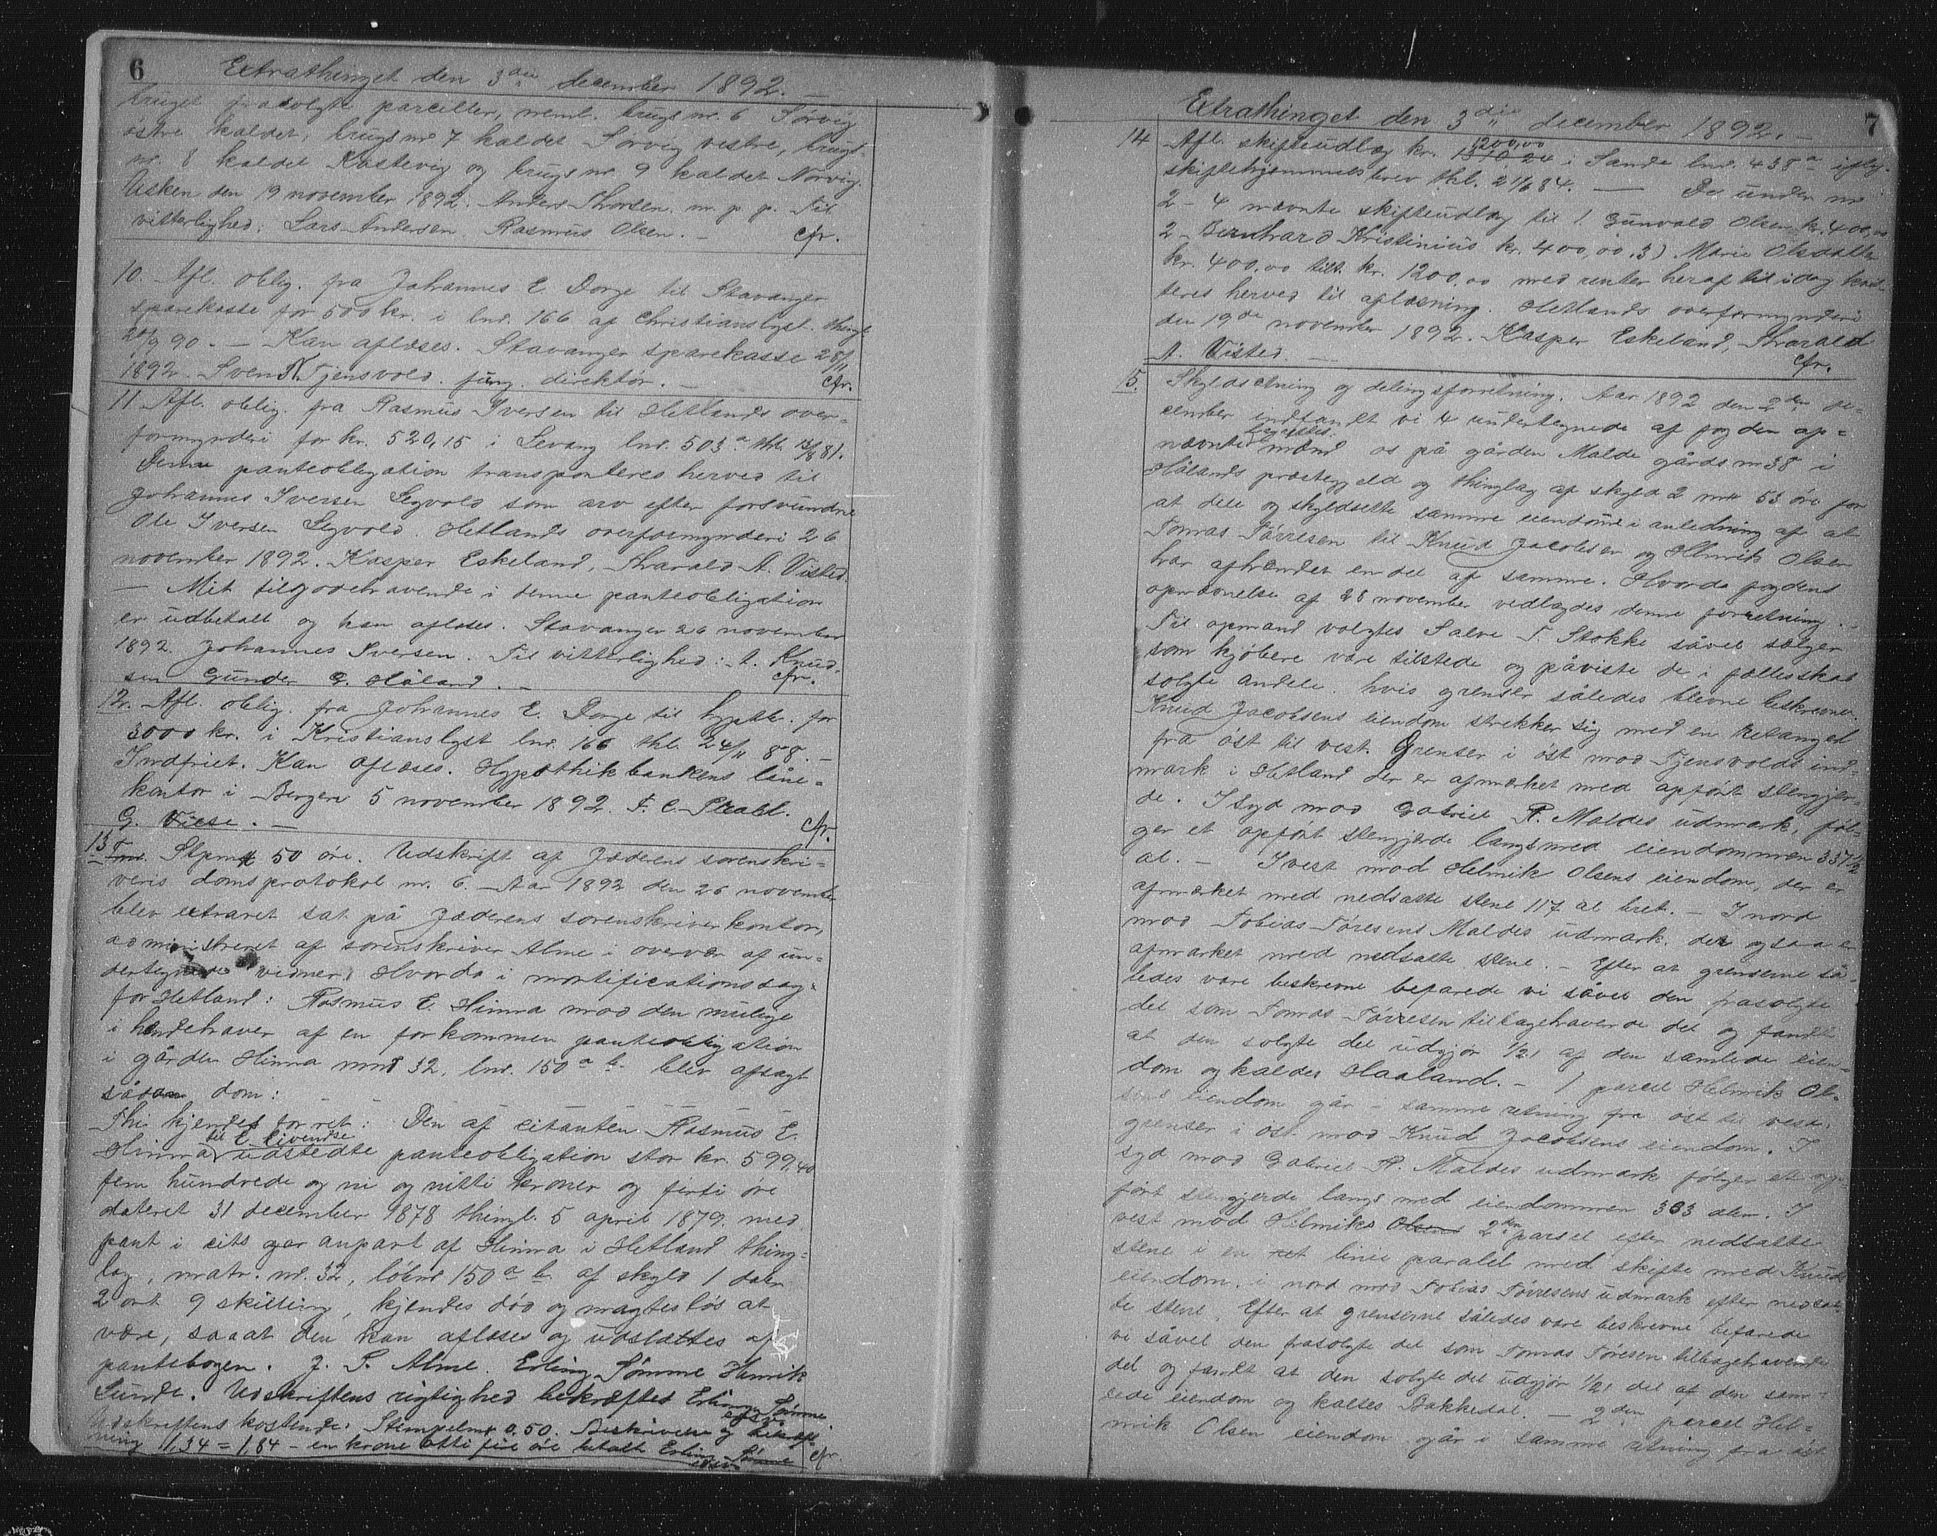 6
Extrathinget den 3die december 1892. —
bruget frasolgte parceller, neml. brugs nr. 6 Sørvig
østre kaldet, brugs nr 7 kaldet Sørvig vestre, brugs-
nr. 8 kaldet Kastevig og brugs nr. 9 kaldet Norvig.
Usken den 19 november 1892. Anders Thorsen m. p. p. Til
vitterlighed: Lars Andersen Rasmus Olsen. — cfr.
10. Afl. oblig. fra Johannes E. Dorge til Stavanger
sparekasse for 500 kr. i lnr. 166 af Christianslyst. thingl.
20/9 90. — Kan aflæses. Stavanger sparekasse 28/11
1892. Svend Tjensvold. fung. direktør. — cfr.
11 Afl. oblig. fra Rasmus Iversen til Hetlands over-
formynderi for kr. 520,15 i Sevang lnr. 503a thl. /8 81.
Denne panteobligation transporteres herved til
Johannes Iversen Sevold som arv efter forsvundne
Ole Iversen Sevold. Hetlands overformynderi 26
november 1892. Kasper Eskeland, Tharald A. Visted.
— Mit tilgodehavende i denne panteobligation
er udbetalt og kan aflæses. Stavanger 26 november
1892. Johannes Iversen. Til vitterlighed: A. Knud-
sen Gunder G. Håland. — cfr.
12. Afl. oblig. fra Johannes E. Dorge til hypthb. for
3000 kr. i Kristianslyst lnr. 166 thl. 24/11 88. —
Indfriet. Kan aflæses. Hypothekbankens låne-
kontor i Bergen 5 november 1892 F. C. Prahl.
G. Wiese. — cfr.
13. Stpm 50 øre. Udskrift af Jæderens sorenskri-
veris domsprotokol nr. 6. — Aar 1892 den 26 november
blev extraret sat på Jæderens sorenskriverkontor,
administreret af sorenskriver Alme i overvær af un-
dertegnede vidner. Hvorda i mortificationssag
for Hetland: Rasmus E. Hinna mod den mulige
ihændehaver af en forkommen panteobligation
i gården Hinna mnr 32, lnr. 150a b. blev afsagt
sådan dom: — — —
Thi kjendes for ret: Den af citanten Rasmus E.
Hinna til E. Eivendse udstedte panteobligation stor kr. 599,40
fem hundrede og ni og nitti kroner og firti øre
dateret 31 december 1878 thingl. 5 april 1879, med
pant i cits gaardpart af Hinna i Hetland thing-
lag, matr. nr. 32, løbnr 150a b. af skyld 1 daler
2 ort 9 skilling, kjendes død og magtesløs at
være, saaat den kan aflæses og udslettes af
pantebogen. J. S. Alme. Erling Sømme Henrik
Sunde. Udskriftens rigtighed bekræftes Erling Sømme
edsv.
Udskriftens kostende: Stempelm 0.50. Beskrivelse og bekræft-
ning 1,34 = 1,84 — en krone otti fire øre betalt Erling Sømme cfr.
edsv
Extrathinget den 3die december 1892. —
7
14 Afl. skifteudlæg kr. 1200,00 i Sande lnr. 438a ifølg.
skiftehjemmelsbrev thl. 21/6 84. — De under nr
2 – 4 nævnte skifteudlæg til 1 Gunvald Olsen kr. 400,00
2 – Bernhard Kristinius kr. 400,00. 3) Marie Olsdatter
kr. 400.00 tils. kr. 1200,00 med renter heraf til idag kvit-
teres herved til aflæsning. Hetlands overformynderi
den 19de november 1892. Kasper Eskeland, Tharald
A. Visted. — cfr.
15. Skyldsetning og delingsforretning. Aar 1892 den 2den de-
cember indfandt vi 4 undertegnede af fogden op-
nævnte mænd os på gården Malde gårds nr 38 i
Hålands præstegjeld og thinglag af skyld 2 mrk 53 øre for
at dele og skyldsette samme eiendom i anledning af at
Tomas Tørresen til Knud Jacobsen og Helmik Olsen
har afhændet en del af samme. Hvorda fogdens
opnævnelse af 28 november vedlægdes denne forretning. —
Til opmand valgtes Salve T. Stokke såvel sælger
som kjøbere vare tilstede og påviste de i fællesskab
solgte andele, hvis grenser således bleve beskrevne.
Knud Jacobsens eiendom strekker sig med en retangel
fra øst til vest. Grenser i øst mod Tjensvolds ind-
mark i Hetland der er afmærket med opført stengjær-
de. I syd mod Gabriel P. Maldes udmark, føl-
ger et opført stengjerde langsmed eiendommen 337 1/2
al. — I vest mod Helmik Olsens eiendom, der er
afmærket med nedsatte stene 117 al bret. — I nord
mod Tobias Tørresens Maldes udmark, der ogsaa er
afmærket med nedsatte stene. — Efter at grenserne så-
ledes vare beskrevne befarede vi såvel den frasolgte
del som Tomas Tørresen tilbagehavende del og fandt
at den solgte del udgjør 1/21 af den samlede eien-
dom og kaldes Haaland. — 1 parcel Helmik Ol-
sens eiendom går i samme retning fra øst til vest,
grenser i øst mod Knud Jacobsens eiendom. I
syd mod Gabriel P. Maldes udmark følger et op-
ført stengjerde langs med eiendommen 303 alen. I
vest mod Helmiks Olsens 2den parsel efter nedsatte
stene i en ret linie paralel med skifte med Knuds
eiendom. i nord mod Tobias Tørresens udmark efter nedsat-
te stene. Efter at grenserne således vare beskrevne, befarede
vi såvel den frasolgte del som Tomas Tørresen tilbagehavende
del og fandt at den solgte del udgjør 1/21 del af den sam-
lede eiendom og kaldes Bakkedal. — 2den parcel Hel-
mik Olsen eiendom går i samme retning fra øst